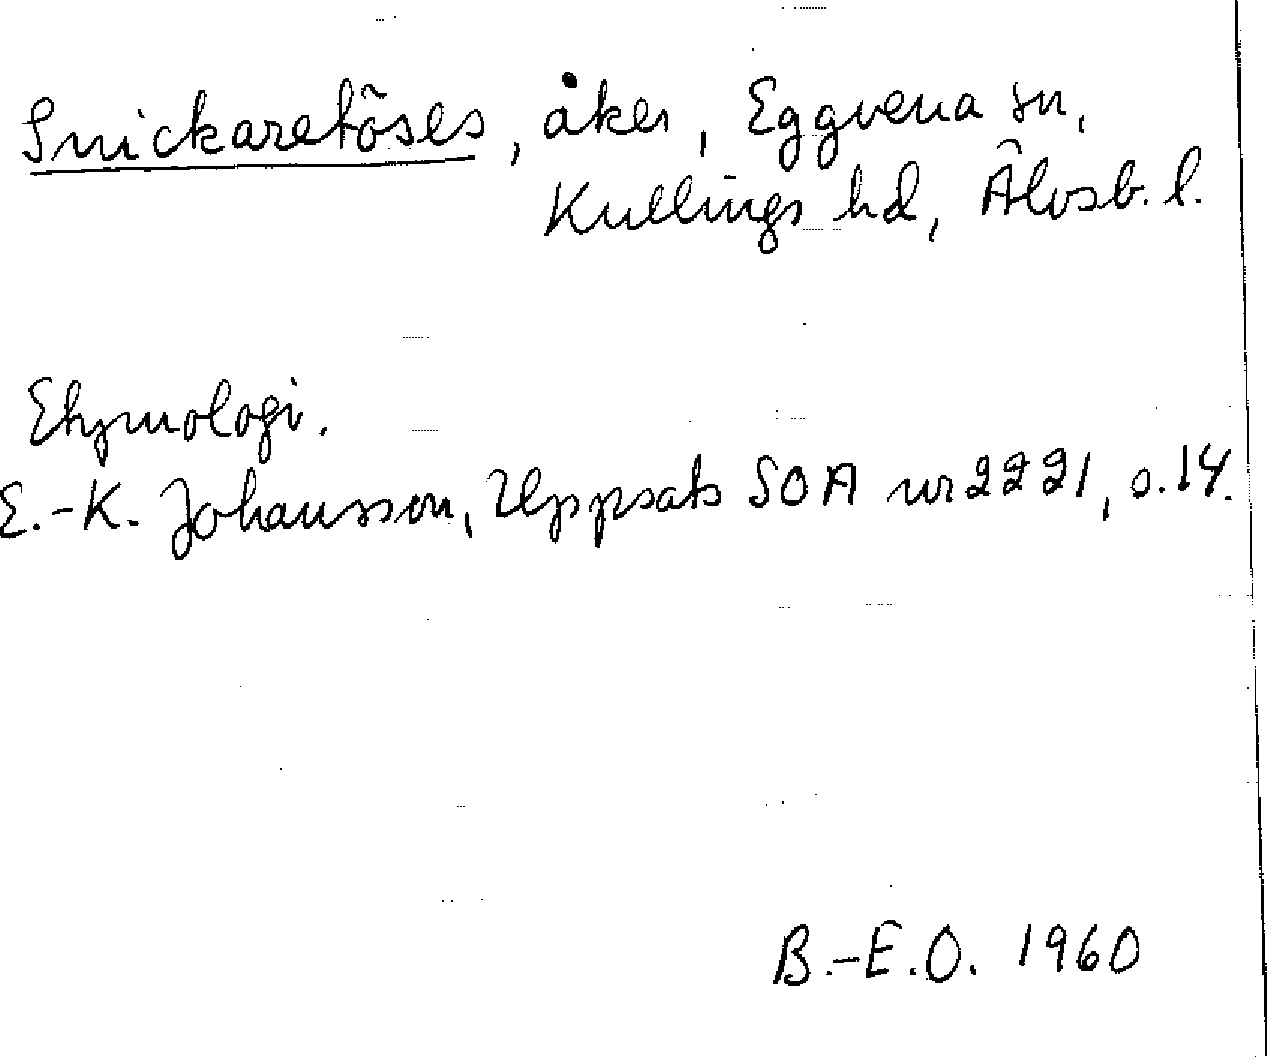 Snickaretöses, åker, Eggvena sn,
Kullings hd, Älvsb. l.
Etymologi.
E.-K. Johansson, Uppsats SOA nr 2221, s. 14.
B.-E.O. 1960